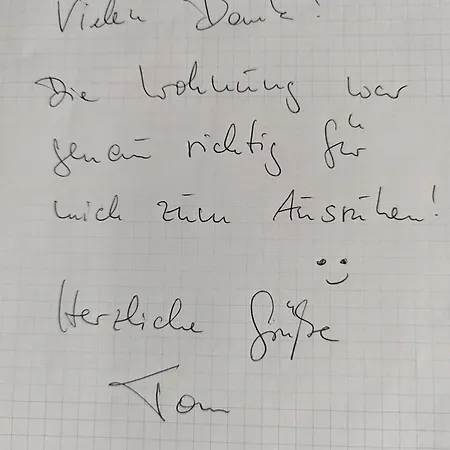 Vielen Dank!
Die Wohnung war
genau richtig für
mich zum Ausruhen!
Herzliche Grüße
Tom